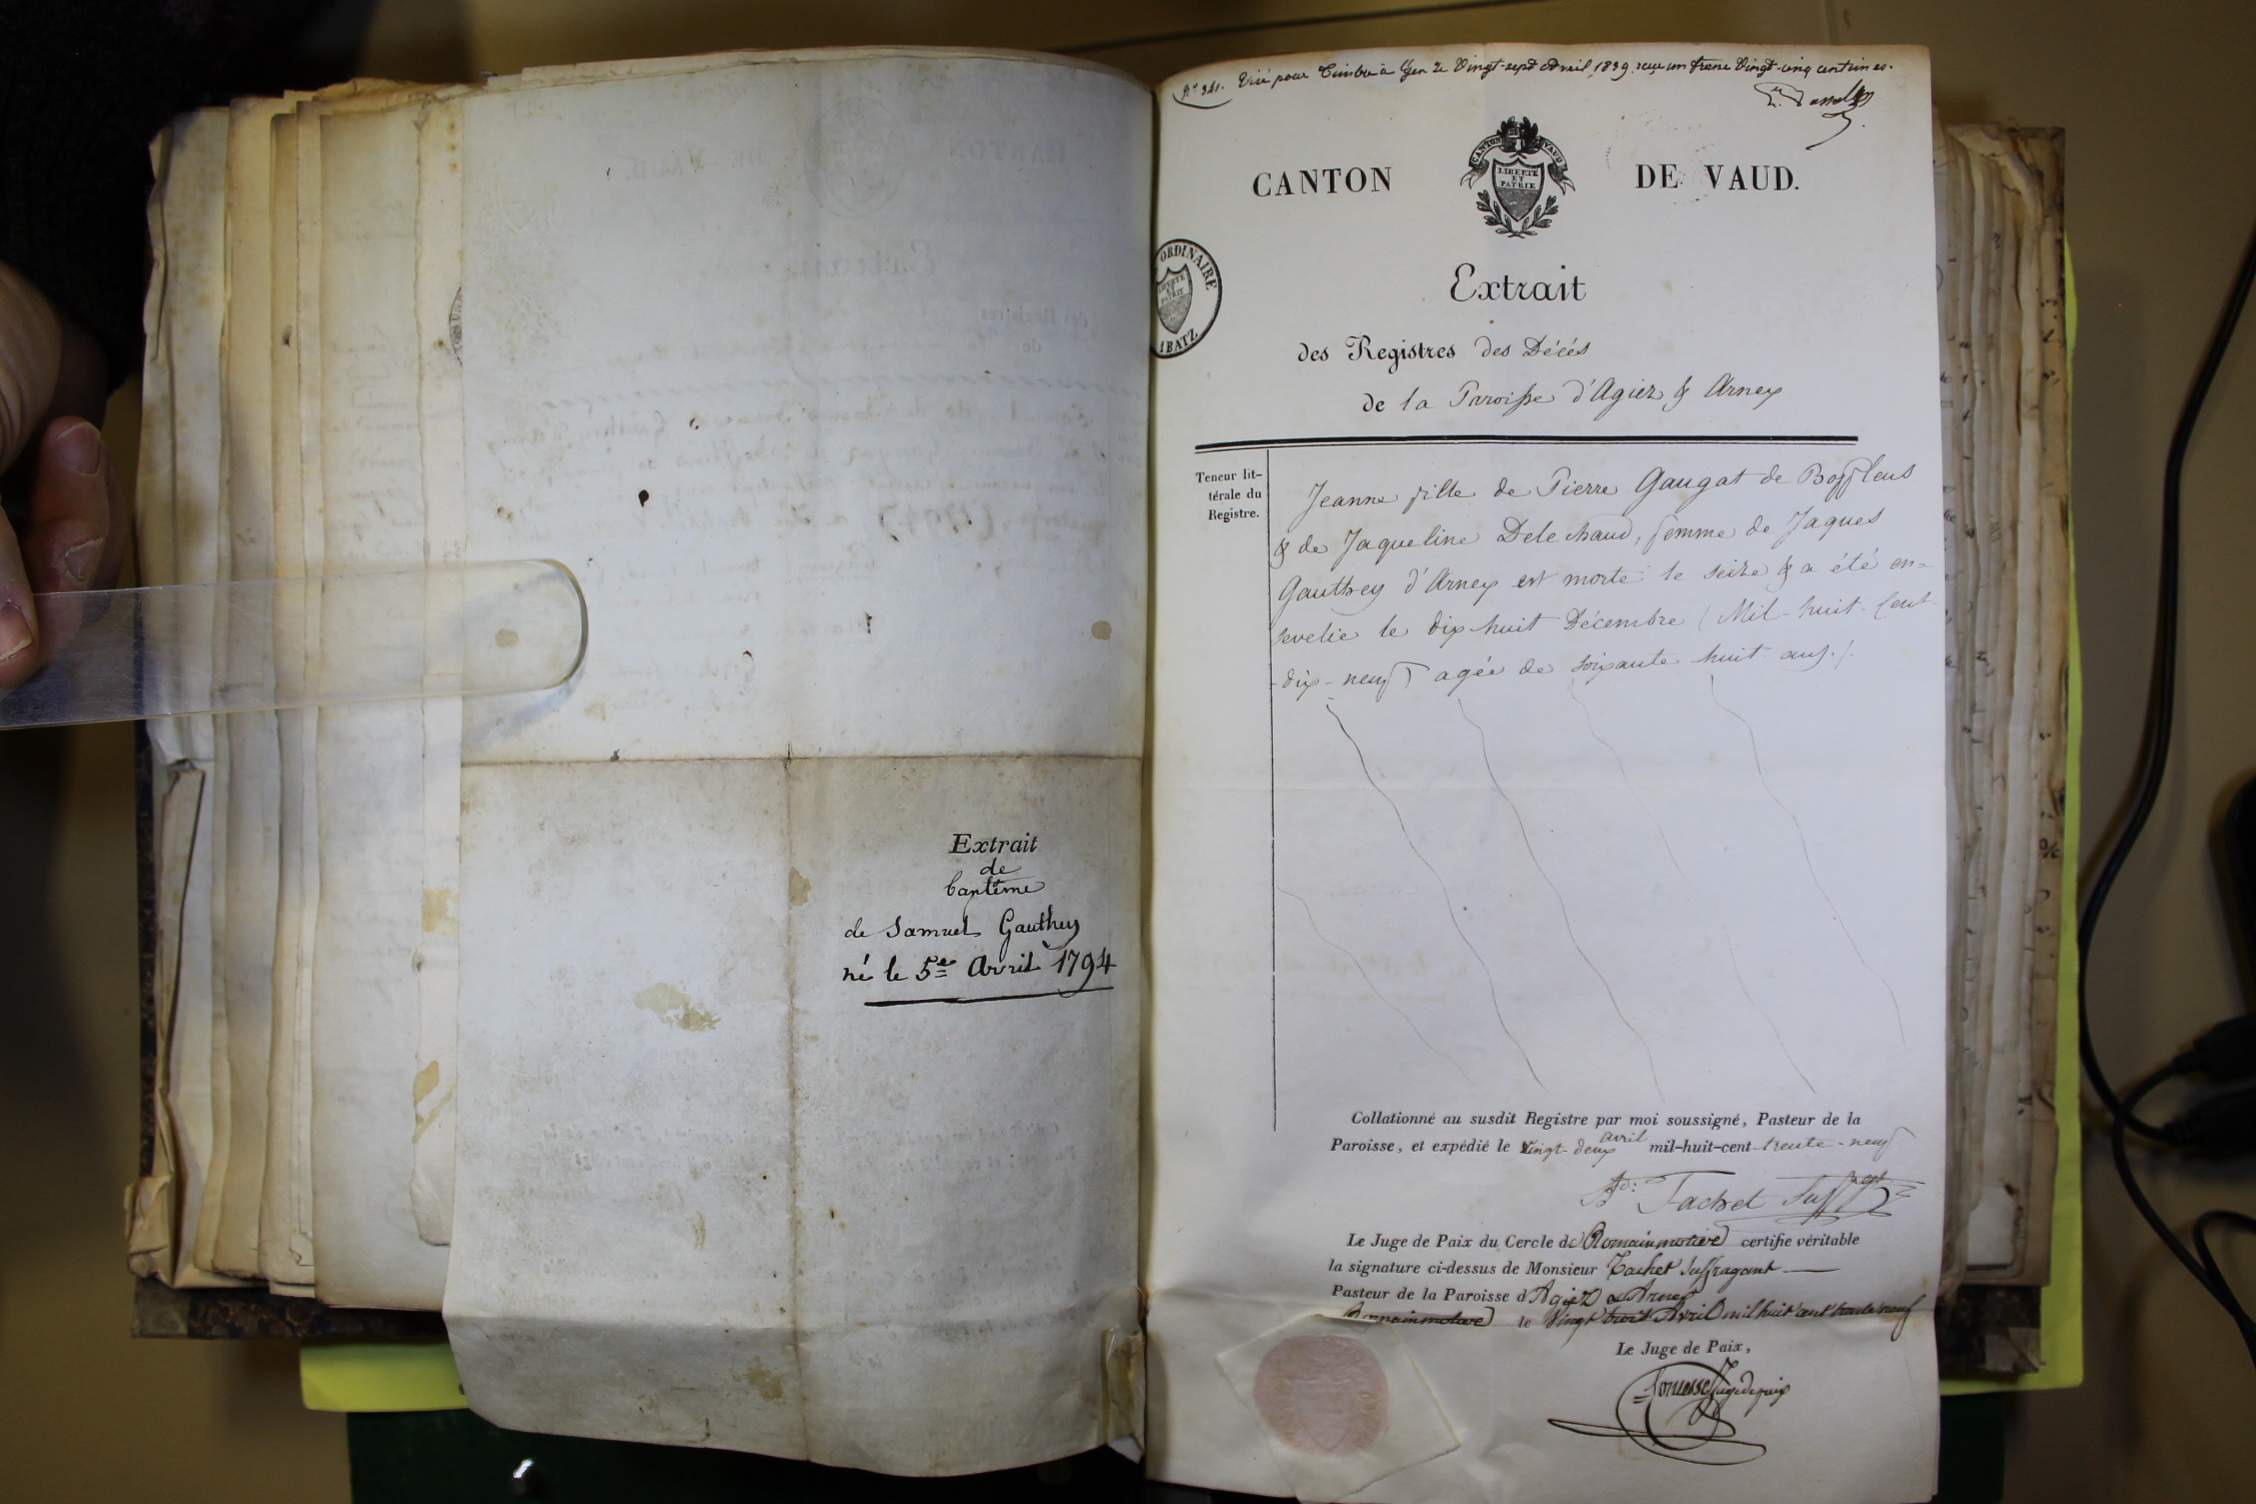 Extrait
de
baptême
de Samuel Gauthey
né le 5e Avril 1794
No 341. Visé pour Timbre à Gex le Vingt-sept Avril 1839. reçu un franc Vingt-cinq centimes.
CANTON DE VAUD.
CANTON VAUD
LIBERTÉ
ET
PATRIE
ORDINAIRE
1 BATZ
Extrait
des Registres des Décés
de la Paroisse d'Agiez & Arnex
Teneur lit-
térale du
Registre.
Jeanne fille de Pierre Gaugat de Bofflens
& de Jaqueline Delechaud, femme de Jaques
Gauthey d'Arnex est morte le seize & a été en=
sevelie le dix huit Décembre (Mil-huit-Cent-
-dix-neuf) agée de soixante huit ans./.
Collationné au susdit Registre par moi soussigné, Pasteur de la
Paroisse, et expédié le vingt-deux avril mil-huit-cent trente-neuf
Tachet Suffragt
Le Juge de Paix du Cercle de Romainmotier certifie véritable
la signature ci-dessus de Monsieur Tachet Suffragant
Pasteur de la Paroisse d'Agiez & Arnex
Romainmotier le Vingt trois Avril mil huit cent trente neuf
Le Juge de Paix,
juge de paix